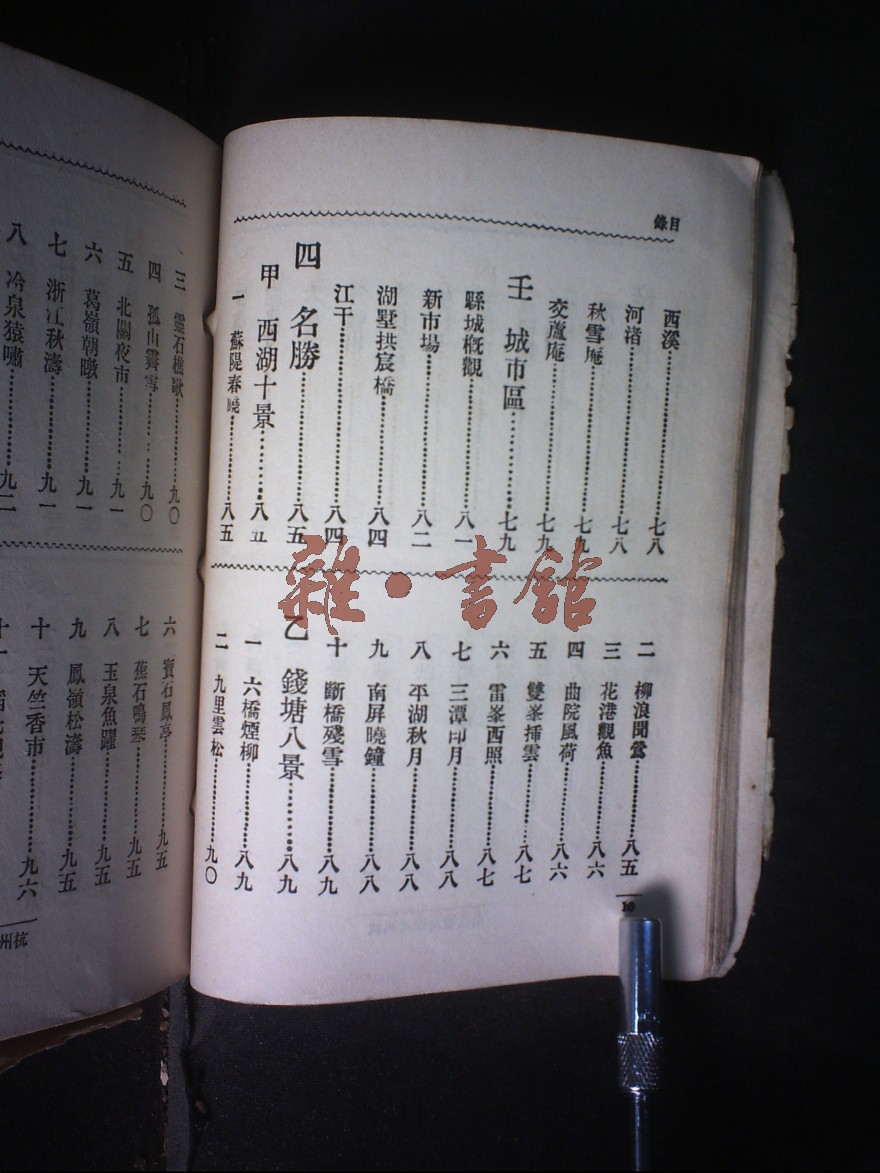 目錄
西溪…………七八
河渚…………七八
秋雪庵…………七九
交蘆庵…………七九
壬 城市區…………七九
縣城概觀…………八一
新市場…………八二
湖墅拱宸橋…………八四
江干…………八四
四 名勝…………八五
甲 西湖十景…………八五
一 蘇隄春曉…………八五
二 柳浪聞鶯…………八五
三 花港觀魚…………八六
四 曲院風荷…………八六
五 雙峯揷雲…………八七
六 雷峯西照…………八七
七 三潭印月…………八八
八 平湖秋月…………八八
九 南屏曉鐘…………八八
十 斷橋殘雪…………八九
乙 錢塘八景…………八九
一 六橋煙柳…………八九
二 九里雲松…………九〇
10
三 靈石樵歌…………九〇
四 孤山霽雪…………九〇
五 北關夜市…………九一
六 葛嶺朝暾…………九一
七 浙江秋濤…………九一
八 冷泉猿嘯…………九二
六 寶石鳳亭…………九五
七 蕉石鳴琴…………九五
八 玉泉魚躍…………九五
九 鳳嶺松濤…………九五
十 天竺香市…………九六
十一
杭州
雜·書館